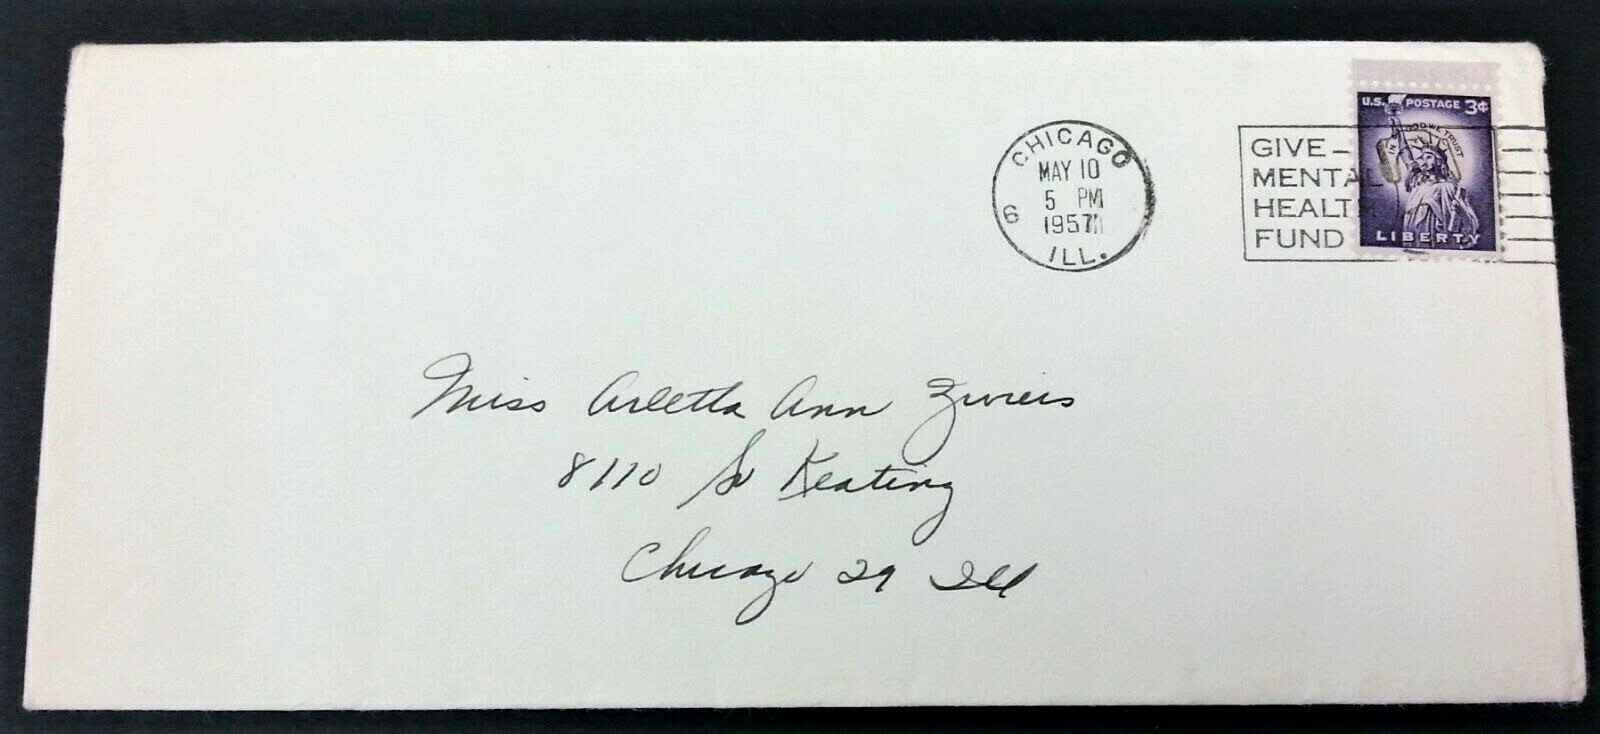 CHICAGO
MAY 10
5 PM
1957
6
ILL.
GIVE
MENTAL
HEALTH
FUND
U.S. POSTAGE 3¢
IN GOD WE TRUST
LIBERTY
Miss Arletta Ann
8110 So Keating
Chicago 29 Ill